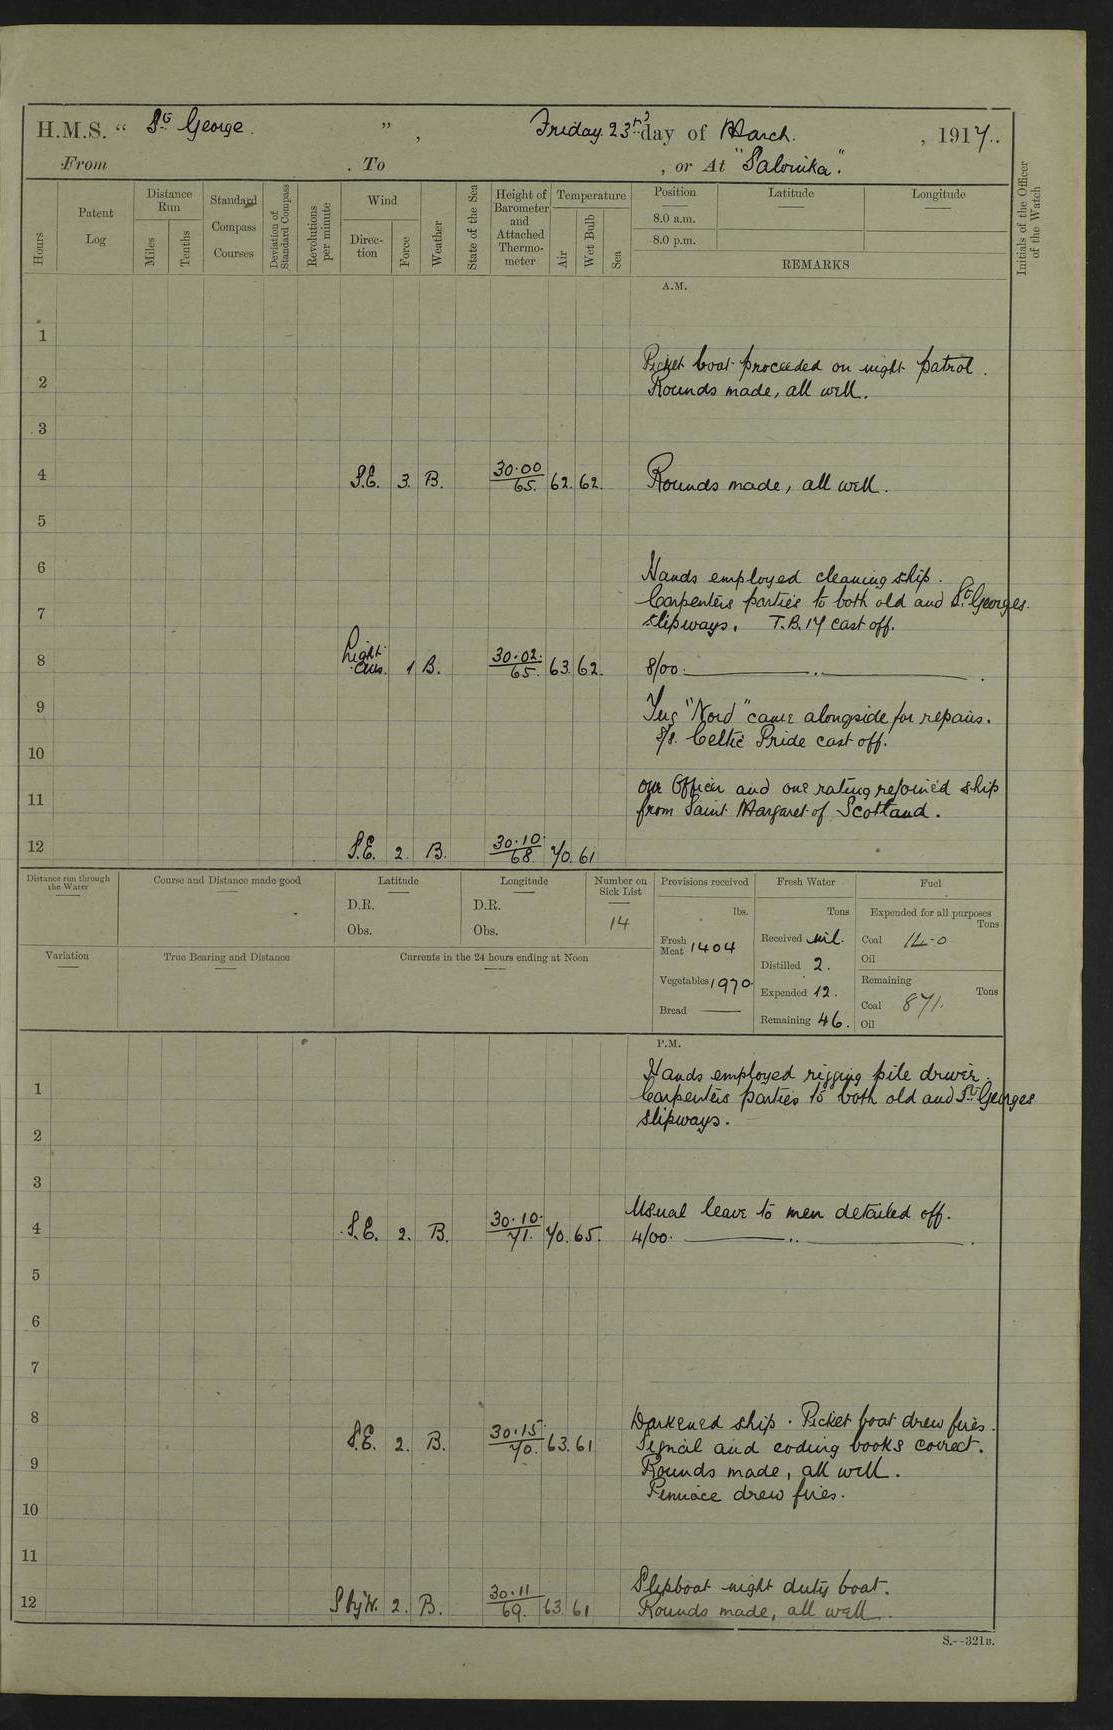 H.M.S. “ St George. ” , Friday 23rd day of March. , 1917.
From . To , or At "Salonika".
Hours
Patent Log
Distance Run
Miles
Tenths
Standard Compass Courses
Deviation of Standard Compass
Revolutions per minute
Wind
Direction
Force
Weather
State of the Sea
Height of Barometer and Attached Thermometer
Temperature
Air
Wet Bulb
Sea
Position
8.0 a.m.
8.0 p.m.
Latitude
Longitude
REMARKS
Initials of the Officer of the Watch
A.M.
1
Picket boat proceeded on night patrol.
2
Rounds made, all well.
3
4 S.E. 3. B. 30.00/65. 62. 62. Rounds made, all well.
5
6
Hands employed cleaning ship.
Carpenters parties to both old and St Georges
7
slipways. T.B. 17 cast off.
8 Light airs. 1 B. 30.02./65. 63. 62. 8/00.
9
Tug "Nord" came alongside for repairs.
S/S. Celtic Pride cast off.
10
One Officer and one rating rejoined ship
11
from Saint Margaret of Scotland.
12 S.E. 2. B. 30.10./68. 70. 61
Distance run through the Water
Course and Distance made good
Latitude
D.R.
Obs.
Longitude
D.R.
Obs.
Number on Sick List
14
Provisions received
lbs.
Fresh Meat 1404
Vegetables 1970
Bread
Fresh Water
Tons
Received nil.
Distilled 2.
Expended 12.
Remaining 46.
Fuel
Expended for all purposes
Tons
Coal 14-0
Oil
Remaining
Tons
Coal 871.
Oil
Variation
True Bearing and Distance
Currents in the 24 hours ending at Noon
P.M.
Hands employed rigging pile driver.
1
Carpenters parties to both old and St Georges
slipways.
2
3
Usual leave to men detailed off.
4 S.E. 2. B. 30.10./71. 70. 65. 4/00.
5
6
7
8
Darkened ship. Picket boat drew fires.
S.E. 2. B. 30.15/70. 63. 61 Signal and coding books correct.
9
Rounds made, all well.
Pinnace drew fires.
10
11
Slipboat night duty boat.
12 S by W. 2. B. 30.11/69. 63. 61 Rounds made, all well.
S.--321B.